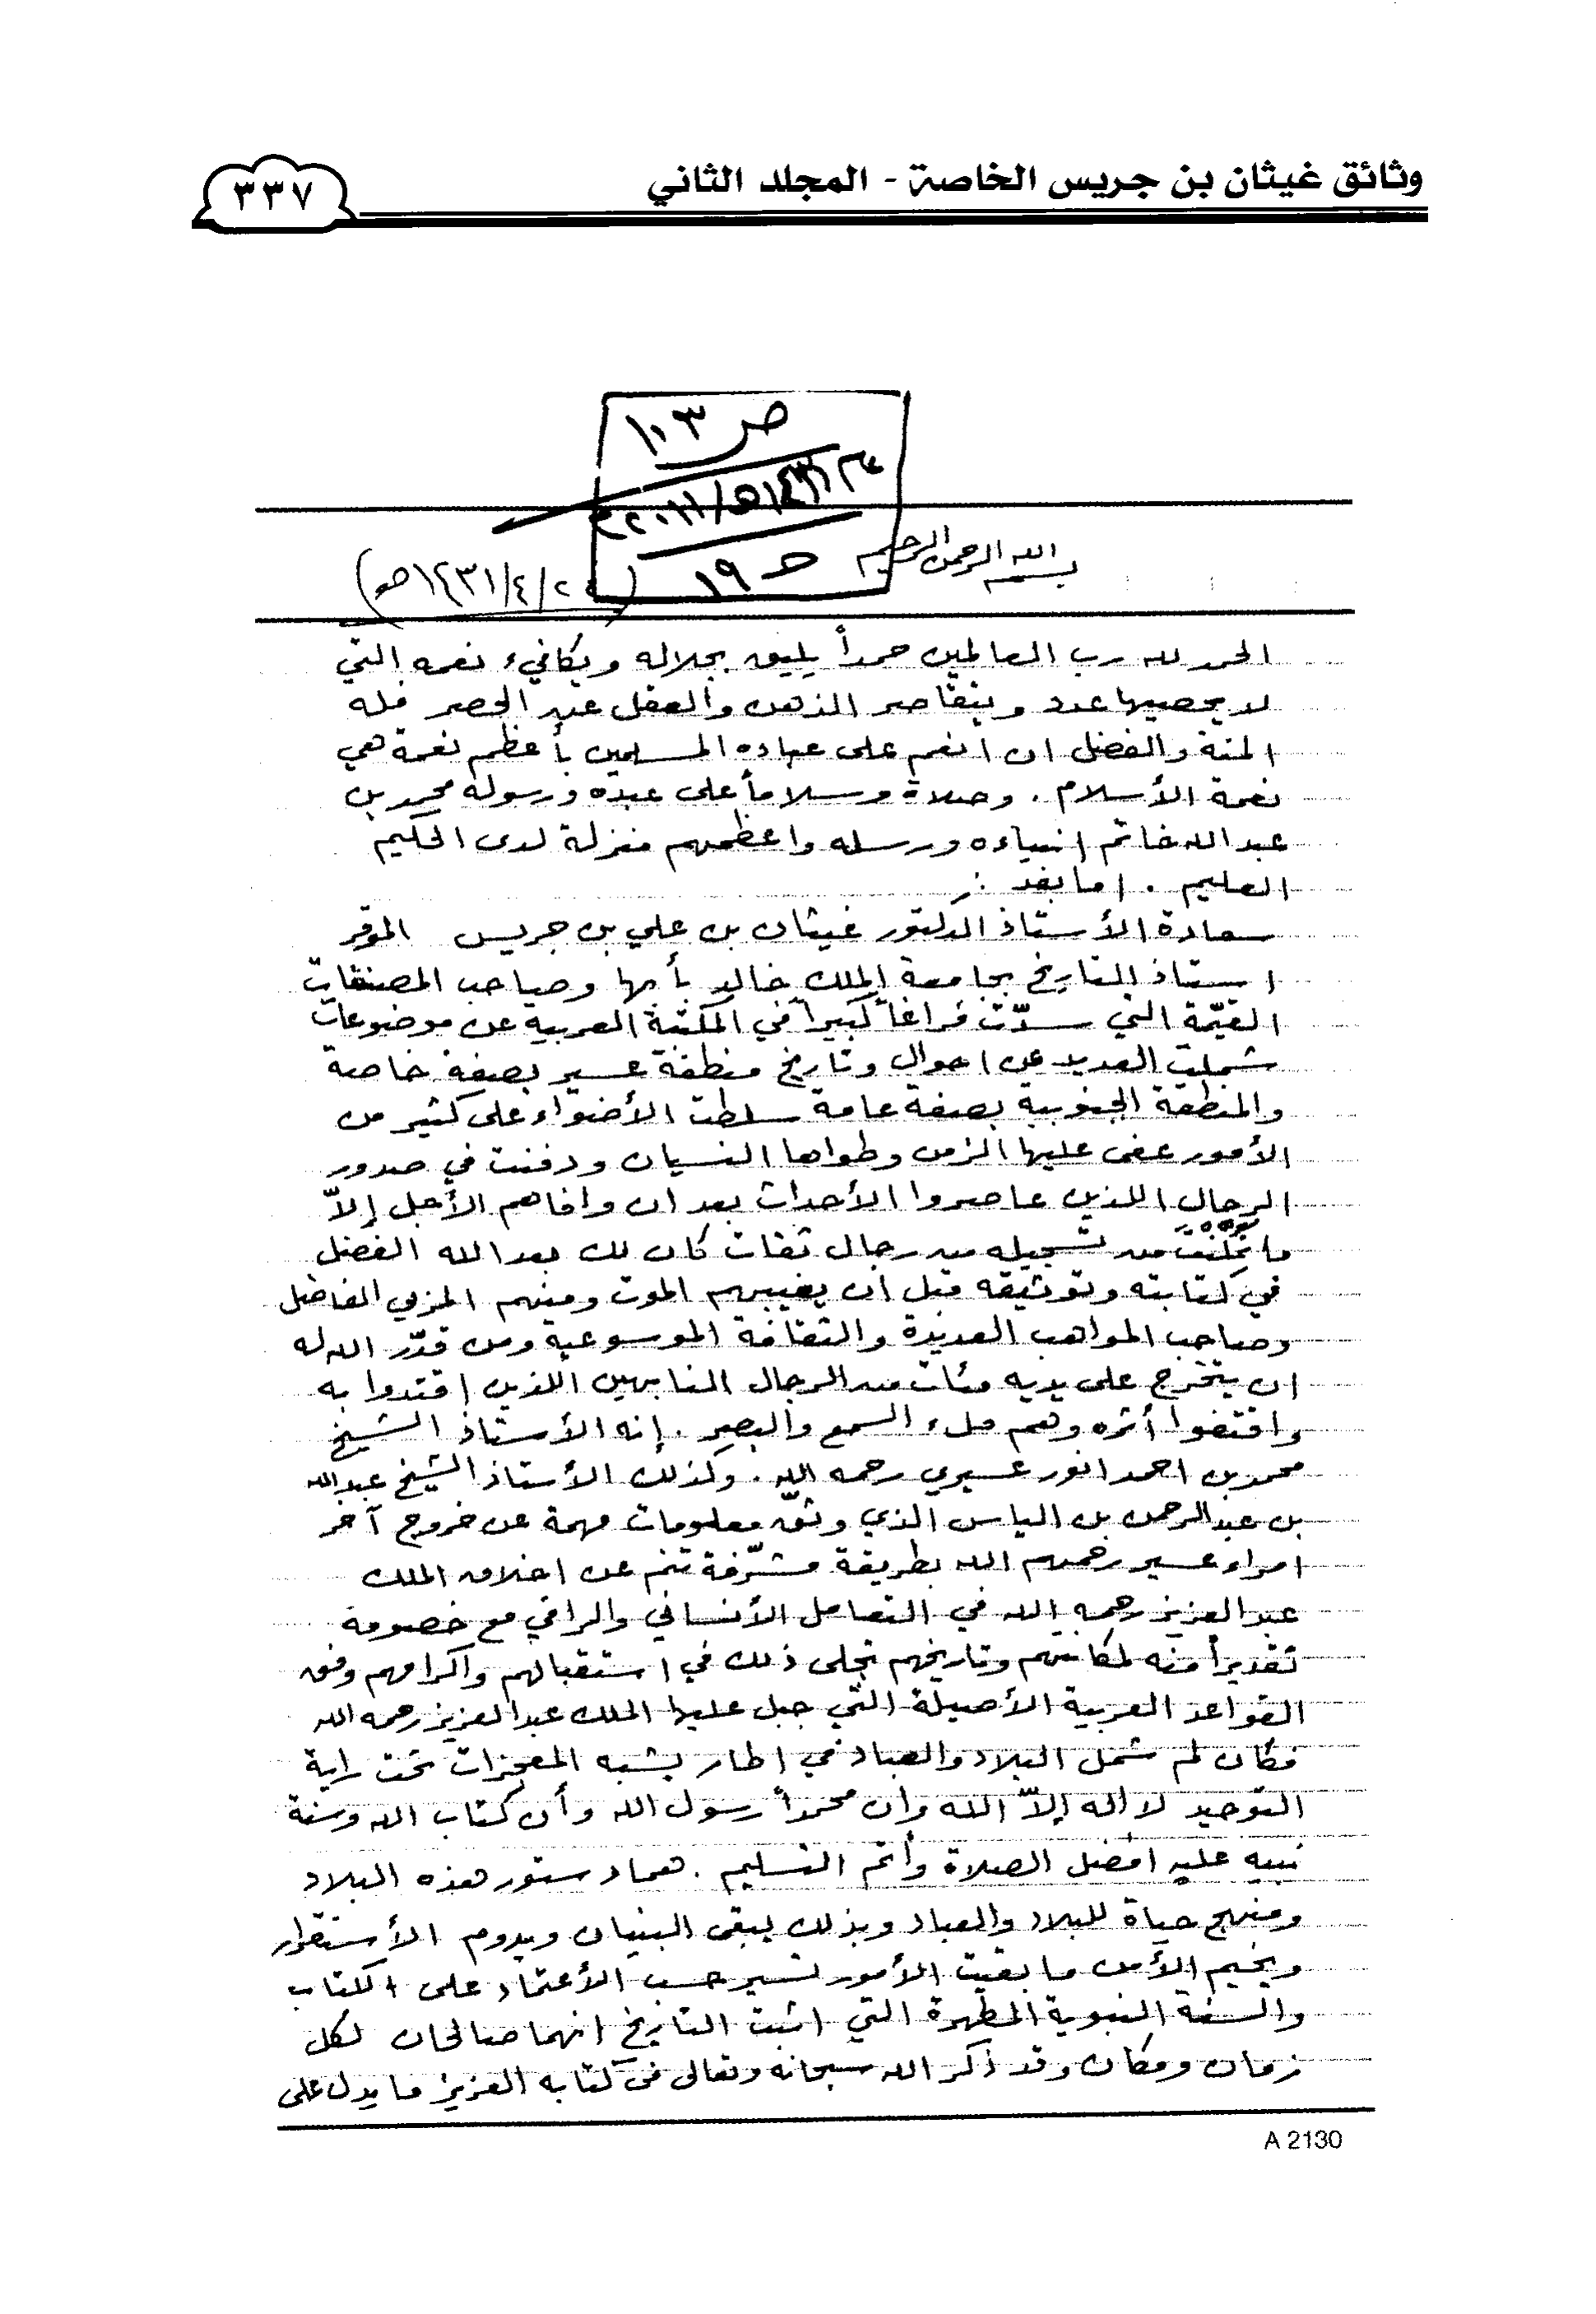 وثائق غيثان بن جريس الخاصة - المجلد الثاني
٣٣٧
ص ١٠٣
١٤٣١هـ/٢٠١١م
١٩
بسم الله الرحمن الرحيم
(٢٤/٤/١٤٣١هـ)
الحمد لله رب العالمين حمداً يليق بجلاله ويكافيء نعمه التي
لا يحصيها عدد ويتقاصر الذهن والعقل عن الحصر فله
المنة والفضل ان انعم على عباده المسلمين بأعظم نعمة هي
نعمة الأسلام . وصلاة وسلاماً على عبده ورسوله محمد بن
عبد الله خاتم انبياءه ورسله واعظمهم منزلة لدى الحكيم
العليم . اما بعد :ـ
سعادة الأستاذ الدكتور غيثان بن علي بن جريس الموقر
استاذ التاريخ بجامعة الملك خالد بأبها وصاحب المصنفات
القيّمة التي سدّت فراغاً كبيراً في المكتبة العربية عن موضوعات
شملت العديد عن احوال وتاريخ منطقة عسير بصفة خاصة
والمنطقة الجنوبية بصفة عامة سلطت الأضواء على كثير من
الأمور عفى عليها الزمن وطواها النسيان ودفنت في صدور
الرجال اللذين عاصروا الأحداث بعد ان وافاهم الأجل إلاّ
ما تمكنت من تسجيله من رجال ثقات كان لك بعد الله الفضل
في كتابته وتوثيقه قبل ان يغيبهم الموت ومنهم المربي الفاضل
وصاحب المواهب العديدة والثقافة الموسوعية ومن قدّر الله له
ان يتخرج على يديه مئات من الرجال النابهين اللذين اقتدوا به
واقتفوا أثره وهم ملء السمع والبصر . إنه الأستاذ الشيخ
محمد بن احمد انور عسيري رحمه الله . وكذلك الأستاذ الشيخ عبدالله
بن عبدالرحمن بن الياس الذي وثق معلومات مهمة عن خروج آخر
امراء عسير رحمهم الله بطريقة مشرّفة تنم عن اخلاق الملك
عبد العزيز رحمه الله في التعامل الأنساني والراقي مع خصومه
تقديراً منه لمكانتهم وتاريخهم تجلى ذلك في استقبالهم واكرامهم وفق
القواعد العربية الأصيلة التي جبل عليها الملك عبد العزيز رحمه الله
فكان لم شمل البلاد والعباد في اطار يشبه المعجزات تحت راية
التوحيد لا اله إلاّ الله وان محمداً رسول الله وأن كتاب الله وسنة
نبيه عليه افضل الصلاة وأتم التسليم . هما دستور هذه البلاد
ومنهج حياة للبلاد والعباد وبذلك يبقى البنيان ويدوم الأستقرار
ويخيم الأمن ما بقيت الأمور تسير حسب الأعتماد على الكتاب
والسنة النبوية المطهرة التي اثبت التاريخ انهما صالحان لكل
زمان ومكان وقد ذكر الله سبحانه وتعالى في كتابه العزيز ما يدل على
A 2130